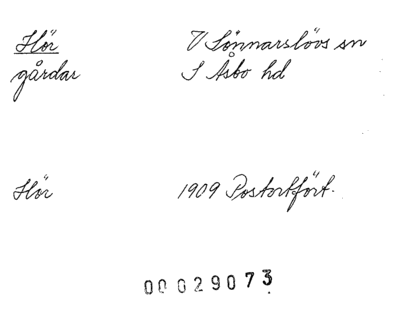 Hör V Sönnarslövs sn
gårdar S Åsbo hd
Hör 1909 Postortfört.
00029073